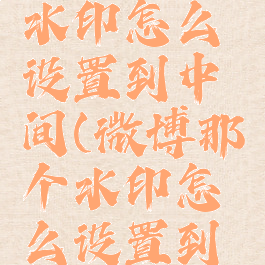 水印怎么
设置到中
间(微博那
个水印怎
么设置到